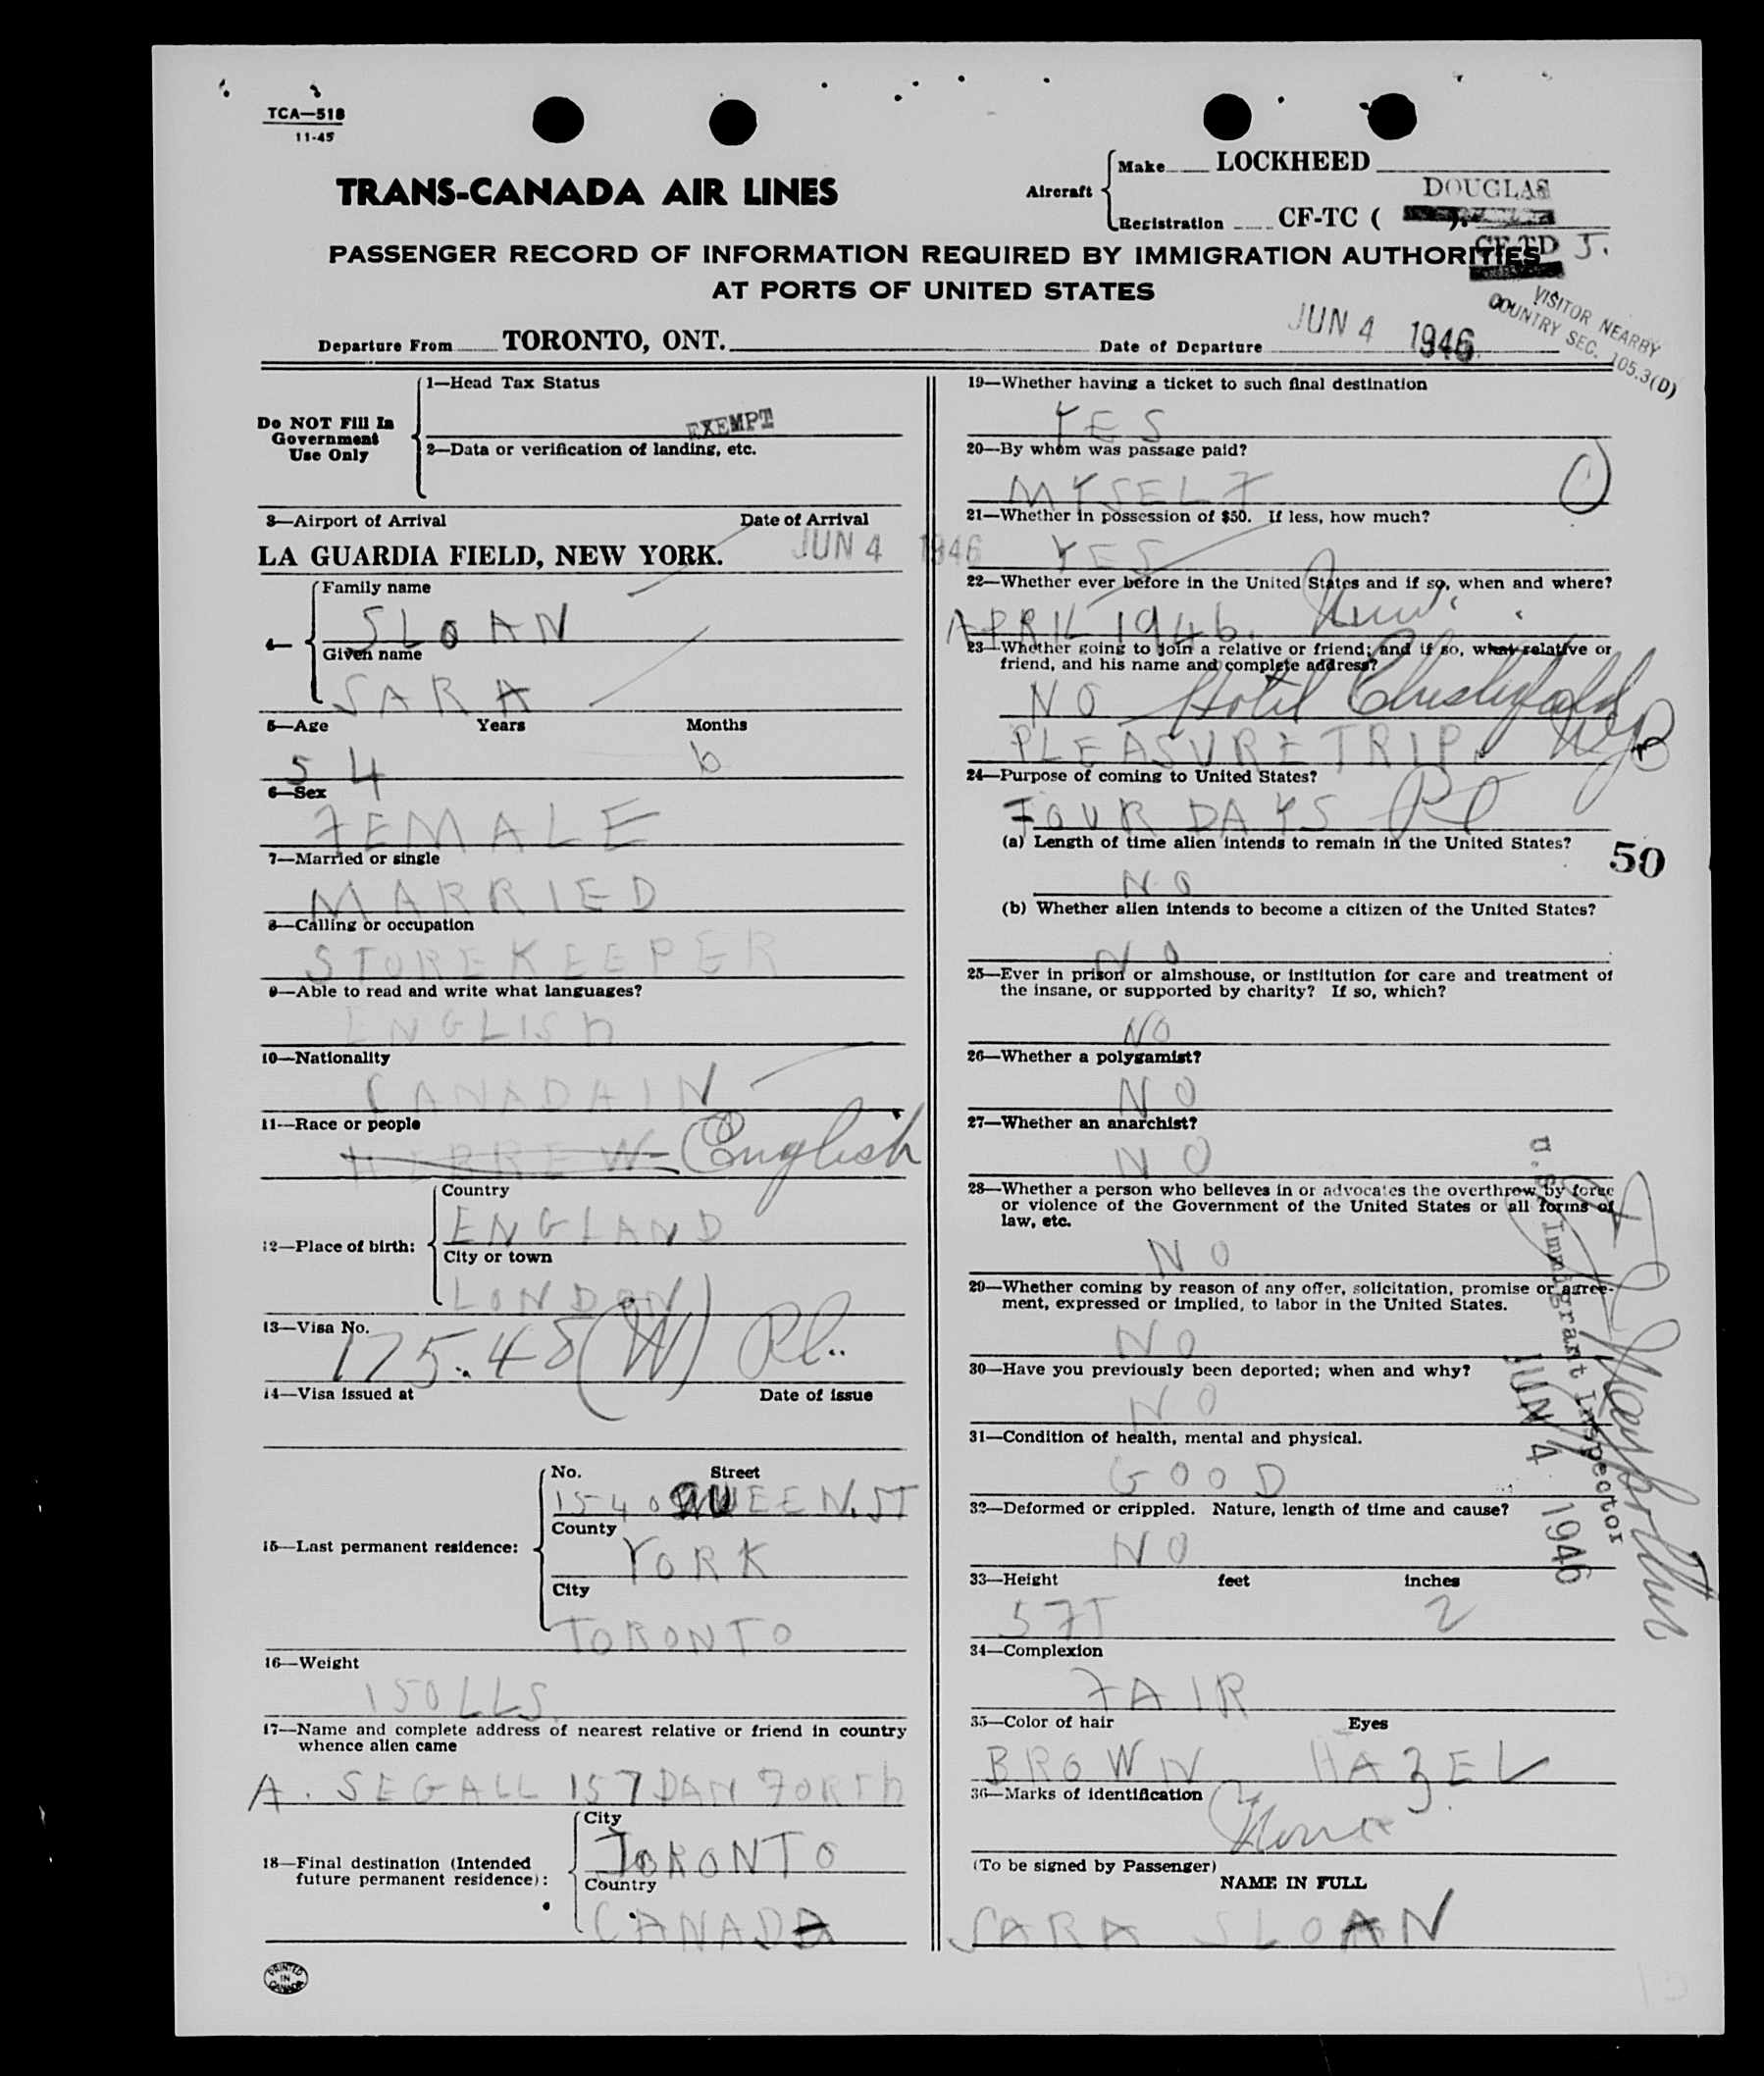 TCA—518
11-45
TRANS-CANADA AIR LINES
Aircraft
Make LOCKHEED
DOUGLAS
Registration CF-TC (
CF-TD J.
PASSENGER RECORD OF INFORMATION REQUIRED BY IMMIGRATION AUTHORITIES
AT PORTS OF UNITED STATES
VISITOR NEARBY
COUNTRY SEC. 105.3(D)
Departure From TORONTO, ONT.
Date of Departure JUN 4 1946
Do NOT Fill In
Government
Use Only
1—Head Tax Status
EXEMPT
2—Data or verification of landing, etc.
3—Airport of Arrival Date of Arrival
LA GUARDIA FIELD, NEW YORK. JUN 4 1946
4—
Family name
SLOAN
Given name
SARA
5—Age Years Months
54 6
6—Sex
FEMALE
7—Married or single
MARRIED
8—Calling or occupation
STOREKEEPER
9—Able to read and write what languages?
ENGLISh
10—Nationality
CANADAIN
11—Race or people
HEBREW- English
12—Place of birth:
Country
ENGLAND
City or town
LONDON
13—Visa No.
175.45 (W)
14—Visa issued at Date of issue
15—Last permanent residence:
No. Street
1540 QUEEN. ST
County
YORK
City
TORONTO
16—Weight
150 LLS.
17—Name and complete address of nearest relative or friend in country
whence alien came
A. SEGALL 157 DANFORTh
18—Final destination (Intended
future permanent residence):
City
TORONTO
Country
CANADA
PRINTED
IN
CANADA
19—Whether having a ticket to such final destination
YES
20—By whom was passage paid?
MYSELF
21—Whether in possession of $50. If less, how much?
YES
22—Whether ever before in the United States and if so, when and where?
APRIL 1946.
23—Whether going to join a relative or friend; and if so, what relative or
friend, and his name and complete address?
NO Hotel Chesterfield
PLEASURE TRIP. NY
24—Purpose of coming to United States?
FOUR DAYS
(a) Length of time alien intends to remain in the United States?
50
NO
(b) Whether alien intends to become a citizen of the United States?
NO
25—Ever in prison or almshouse, or institution for care and treatment of
the insane, or supported by charity? If so, which?
NO
26—Whether a polygamist?
NO
27—Whether an anarchist?
NO
28—Whether a person who believes in or advocates the overthrow by force
or violence of the Government of the United States or all forms of
law, etc.
NO
29—Whether coming by reason of any offer, solicitation, promise or agree-
ment, expressed or implied, to labor in the United States.
NO
30—Have you previously been deported; when and why?
NO
31—Condition of health, mental and physical.
GOOD
32—Deformed or crippled. Nature, length of time and cause?
NO
33—Height feet inches
5 FT 2
34—Complexion
FAIR
35—Color of hair Eyes
BROWN HAZEL
36—Marks of identification
None
(To be signed by Passenger)
NAME IN FULL
SARA SLOAN
U.S. Immigrant Inspector
JUN 4 1946